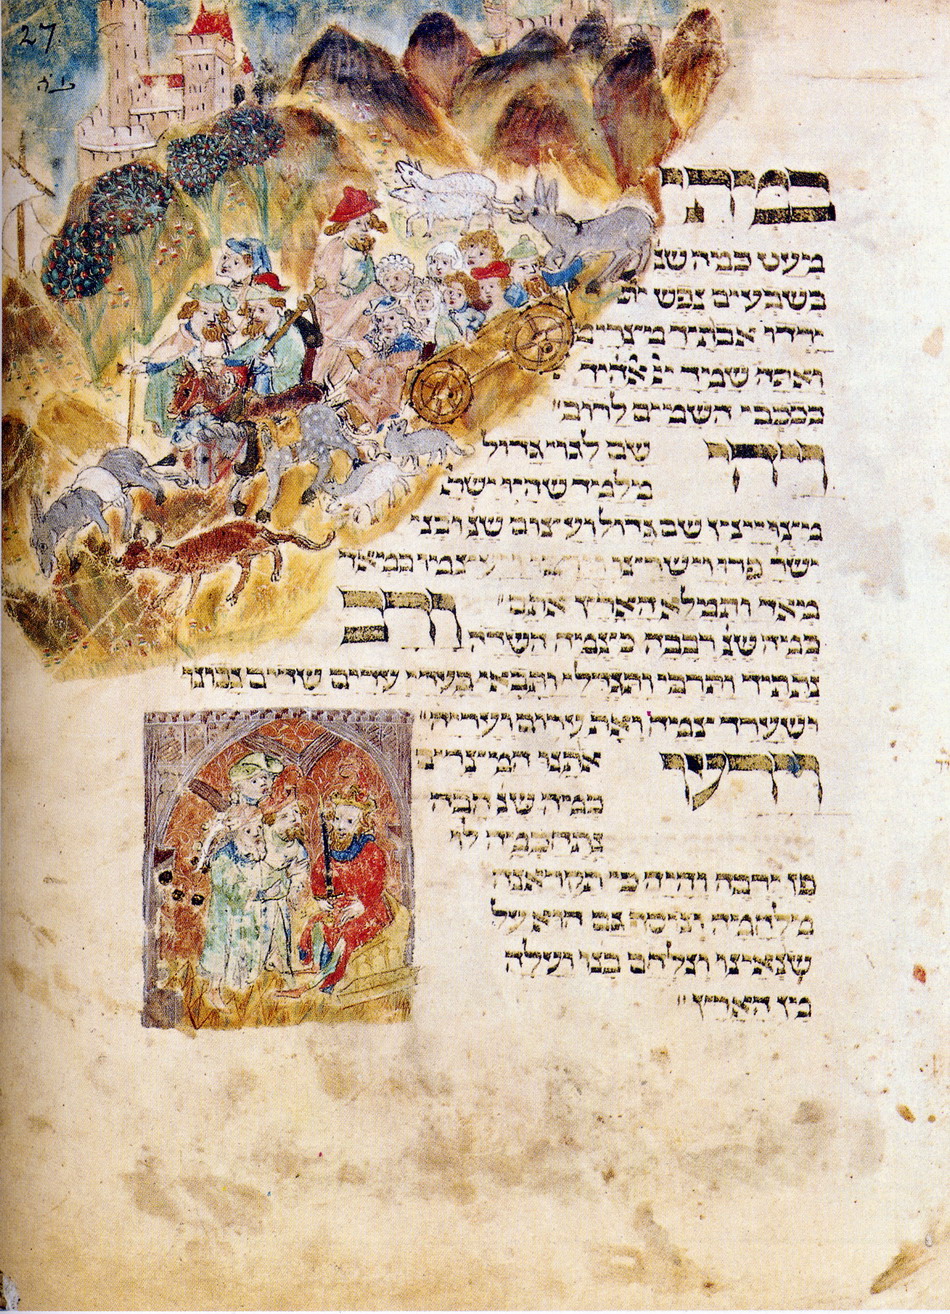 27
במתי
מעט כמה שנ'
בשבעים נפש
ירדו אבתיך מצרימה
ואתה שמיך יי אלהיך
ככבבי השמים לרוב״
ויהי שם לגוי גדול
מלמיד שהיו ישר'
מצויינין שם גדול ועצום שנ' ובני
ישר' פרו וישרצו וירבו ויעצמו במאד
מאד ותמלא הארץ אתם״
ורב
כמה שנ' רבבה כצמח השדה
נתתיך ותרבי ותגדלי ותבאי בעדי עדיים שדיים נכונו
ושערך צמח ואת ערום ועריה״
וירעו אתנו המצרים
כמה שנ' הבה
נתחכמה לו
פן ירבה והיה כי תקראנה
מלחמה ונוסף גם הוא על
שנאינו ונלחם בנו ועלה
מן הארץ״